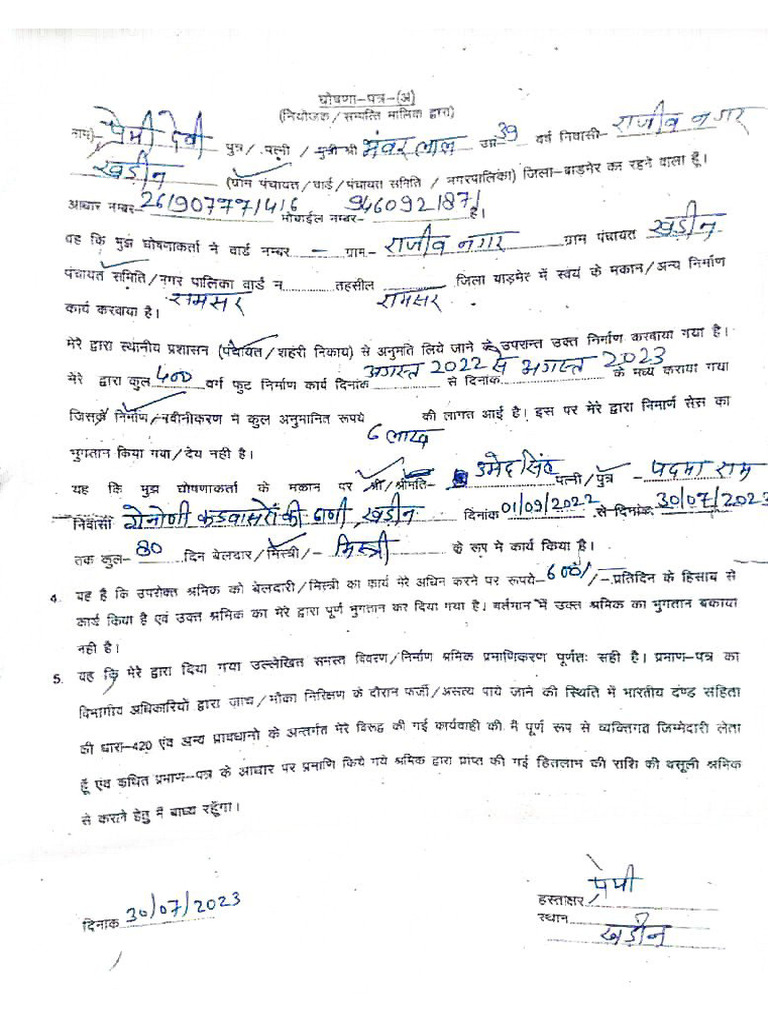 घोषणा-पत्र-(अ)
(नियोजक/सम्पत्ति मालिक द्वारा)
नाम) पेमी देवी पुत्र/पत्नी/पुत्री श्री भंवर लाल उम्र 39 वर्ष निवासी- राजीव नगर
खडीन (ग्राम पंचायत/वार्ड/पंचायत समिति / नगरपालिका) जिला-बाड़मेर का रहने वाला हूँ।
आधार नम्बर- 261907771416 मोबाईल नम्बर- 9460921871 है।
यह कि मुझ घोषणाकर्ता ने वार्ड नम्बर - ग्राम- राजीव नगर ग्राम पंचायत खडीन
पंचायत समिति/नगर पालिका वार्ड न रामसर तहसील रामसर जिला बाड़मेर में स्वयं के मकान/अन्य निर्माण
कार्य करवाया है।
मेरे द्वारा स्थानीय प्रशासन (पंचायत/शहरी निकाय) से अनुमति लिये जाने के उपरान्त उक्त निर्माण करवाया गया है।
मेरे द्वारा कुल 400 वर्ग फुट निर्माण कार्य दिनांक अगस्त 2022 से दिनांक से अगस्त 2023 के मध्य कराया गया
जिसके निर्माण/नवीनीकरण में कुल अनुमानित रूपये 6 लाख की लागत आई है। इस पर मेरे द्वारा निमार्ण सेस का
भुगतान किया गया/देय नही है।
यह कि मुझ घोषणाकर्ता के मकान पर श्री/श्रीमति- उमेद सिंह पत्नी/पुत्र - पदमा राम
निवासी कडवासरों की ढाणी, खडीन दिनांक 01/09/2022 से दिनांक 30/07/2023
तक कुल- 80 दिन बेलदार/मिस्त्री/- मिस्त्री के रूप मे कार्य किया है।
4. यह है कि उपरोक्त श्रमिक को बेलदारी/मिस्त्री का कार्य मेरे अधिन करने पर रूपये- 600/ /-प्रतिदिन के हिसाब से
कार्ड किया है एवं उक्त श्रमिक का मेरे द्वारा पूर्ण भुगतान कर दिया गया है। वर्तमान में उक्त श्रमिक का भुगतान बकाया
नही है।
5. यह कि मेरे द्वारा दिया गया उल्लेखित समस्त विवरण/निर्माण श्रमिक प्रमाणिकरण पूर्णतः सही है। प्रमाण-पत्र का
विभागीय अधिकारियों द्वारा जाच/मौका निरिक्षण के दौरान फर्जी/असत्य पाये जाने की स्थिति में भारतीय दंण्ड संहिता
की धारा-420 एंव अन्य प्रावधानो के अन्तर्गत मेरे विरूद्व की गई कार्यवाही की मै पूर्ण रूप से व्यक्तिगत जिम्मेदारी लेता
हूँ एंव कथित प्रमाण-पत्र के आधार पर प्रमाणि किये गये श्रमिक द्वारा प्राप्त की गई हितलाभ की राशि की वसूली श्रमिक
से कराने हेतु मै बाध्य रहूँगा।
पेमी
दिनांक 30/07/2023 हस्ताक्षर
स्थान खडीन